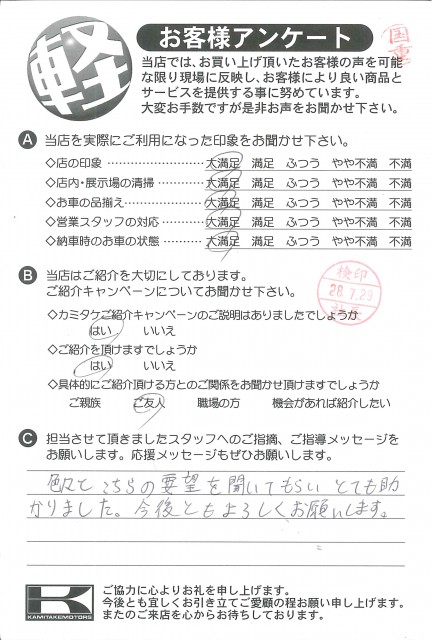 軽
お客様アンケート
国重
当店では、お買い上げ頂いたお客様の声を可能
な限り現場に反映し、お客様により良い商品と
サービスを提供する事に努めています。
大変お手数ですが是非お声をお聞かせ下さい。
A 当店を実際にご利用になった印象をお聞かせ下さい。
◇店の印象 ………………… 大満足 満足 ふつう やや不満 不満
◇店内・展示場の清掃 ……… 大満足 満足 ふつう やや不満 不満
◇お車の品揃え……………… 大満足 満足 ふつう やや不満 不満
◇営業スタッフの対応 ……… 大満足 満足 ふつう やや不満 不満
◇納車時のお車の状態 ……… 大満足 満足 ふつう やや不満 不満
B 当店はご紹介を大切にしてあります。
ご紹介キャンペーンについてお聞かせ下さい。
検印
28.7.29
◇カミタケご紹介キャンペーンのご説明はありましたでしょうか
はい . いいえ
◇ご紹介を頂けますでしょうか
はい いいえ
◇具体的にご紹介頂ける方とのご関係をお聞かせ頂けますでしょうか
ご親族 ご友人 職場の方 機会があれば紹介したい
C 担当させて頂きましたスタッフへのご指摘、ご指導メッセージを
お願いします。応援メッセージもぜひお願いします。
色々と こちらの要望を聞いてもらい とても助
かりました。今後ともよろしくお願いします。
K
KAMITAKEMOTORS
ご協力に心よりお礼を申し上げます。
今後とも宜しくお引き立てご愛顧の程お願い申し上げます。
またのご来店を心からお待ちしております。